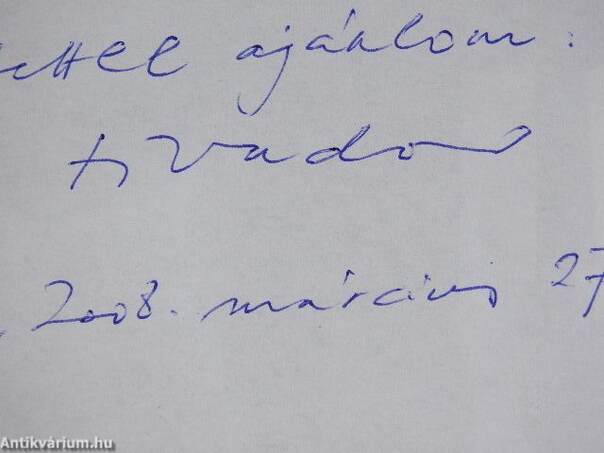 ettel ajánlom:
2008. március 27
Antikvárium.hu